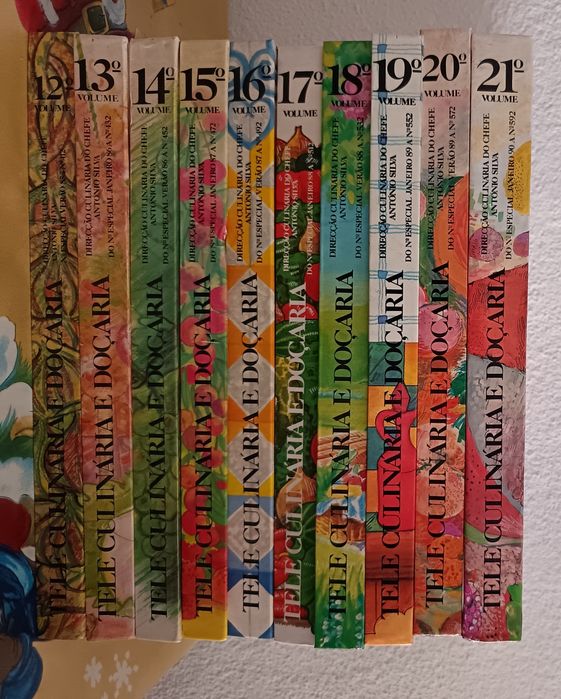 12º
VOLUME
DIRECÇÃO CULINÁRIA DO CHEFE
ANTÓNIO SILVA
TELE CULINÁRIA E DOÇARIA
13º
VOLUME
DIRECÇÃO CULINÁRIA DO CHEFE
ANTÓNIO SILVA
DO Nº ESPECIAL JANEIRO 86 A Nº 432
TELE CULINÁRIA E DOÇARIA
14º
VOLUME
DIRECÇÃO CULINÁRIA DO CHEFE
ANTÓNIO SILVA
DO Nº ESPECIAL VERÃO 86 A Nº 452
TELE CULINÁRIA E DOÇARIA
15º
VOLUME
DIRECÇÃO CULINÁRIA DO CHEFE
ANTÓNIO SILVA
DO Nº ESPECIAL JANEIRO 87 A Nº 472
TELE CULINÁRIA E DOÇARIA
16º
VOLUME
DIRECÇÃO CULINÁRIA DO CHEFE
ANTÓNIO SILVA
DO Nº ESPECIAL VERÃO 87 A Nº 492
TELE CULINÁRIA E DOÇARIA
17º
VOLUME
DIRECÇÃO CULINÁRIA DO CHEFE
ANTÓNIO SILVA
DO Nº ESPECIAL JANEIRO 88 A Nº 512
TELE CULINÁRIA E DOÇARIA
18º
VOLUME
DIRECÇÃO CULINÁRIA DO CHEFE
ANTÓNIO SILVA
DO Nº ESPECIAL VERÃO 88 A Nº 532
TELE CULINÁRIA E DOÇARIA
19º
VOLUME
DIRECÇÃO CULINÁRIA DO CHEFE
ANTÓNIO SILVA
DO Nº ESPECIAL JANEIRO 89 A Nº 552
TELE CULINÁRIA E DOÇARIA
20º
VOLUME
DIRECÇÃO CULINÁRIA DO CHEFE
ANTÓNIO SILVA
DO Nº ESPECIAL VERÃO 89 A Nº 572
TELE CULINÁRIA E DOÇARIA
21º
VOLUME
DIRECÇÃO CULINÁRIA DO CHEFE
ANTÓNIO SILVA
DO Nº ESPECIAL JANEIRO 90 A Nº 592
TELE CULINÁRIA E DOÇARIA